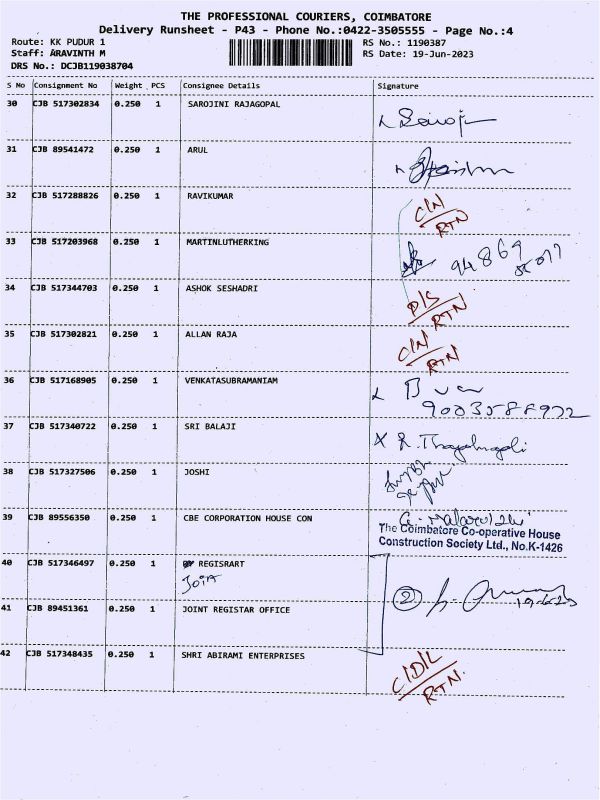 THE PROFESSIONAL COURIERS, COIMBATORE
Delivery Runsheet - P43 - Phone No.:0422-3505555 - Page No.:4
Route: KK PUDUR 1 RS No.: 1190387
Staff: ARAVINTH M RS Date: 19-Jun-2023
DRS No.: DCJB119038704
S No Consignment No Weight PCS Consignee Details Signature
30 CJB 517302834 0.250 1 SAROJINI RAJAGOPAL
31 CJB 89541472 0.250 1 ARUL
32 CJB 517288826 0.250 1 RAVIKUMAR C/N
RTN
33 CJB 517203968 0.250 1 MARTINLUTHERKING 94869
34 CJB 517344703 0.250 1 ASHOK SESHADRI D/S
RTN
35 CJB 517302821 0.250 1 ALLAN RAJA C/N
RTN
36 CJB 517168905 0.250 1 VENKATASUBRAMANIAM
37 CJB 517340722 0.250 1 SRI BALAJI
38 CJB 517327506 0.250 1 JOSHI
39 CJB 89556350 0.250 1 CBE CORPORATION HOUSE CON
The Coimbatore Co-operative House
Construction Society Ltd., No.K-1426
40 CJB 517346497 0.250 1 REGISRART
Joint
2
41 CJB 89451361 0.250 1 JOINT REGISTAR OFFICE
42 CJB 517348435 0.250 1 SHRI ABIRAMI ENTERPRISES C/D/L
RTN